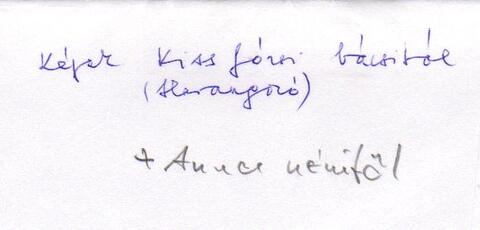 Képek Kiss Józsi bácsitól
(Harangozó)
+ Annus nénitől